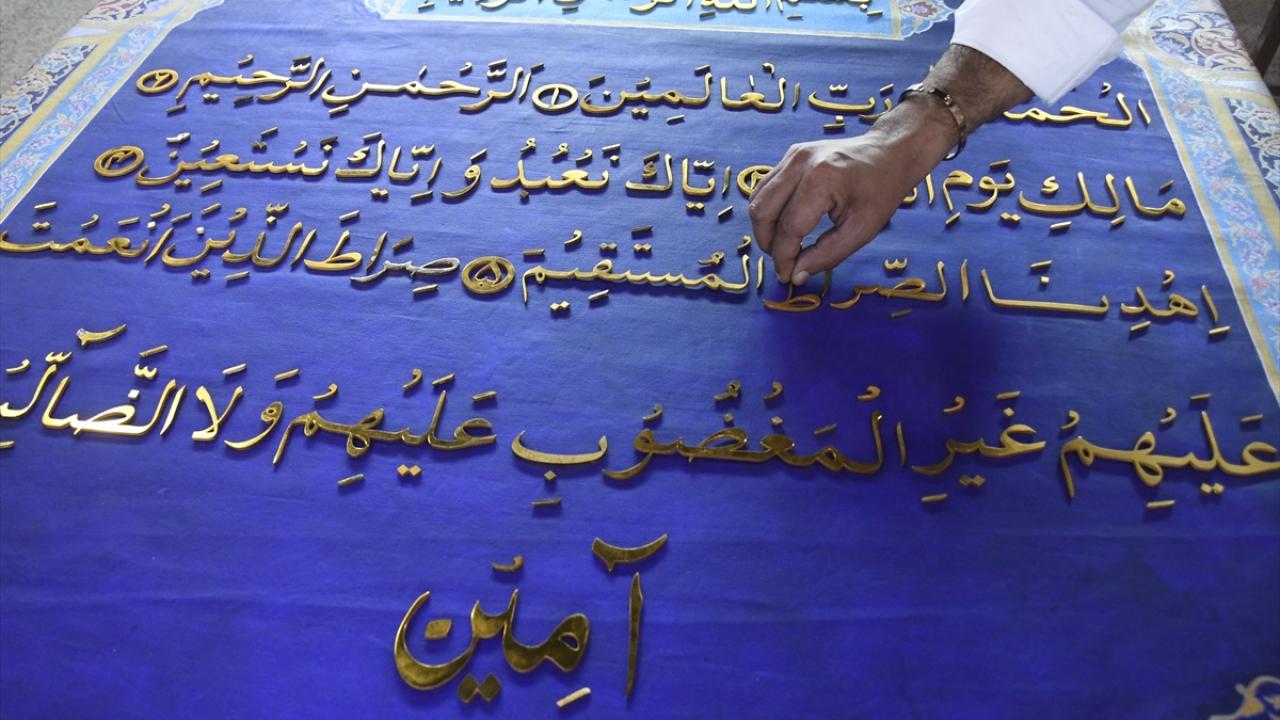 بِسْمِ اللهِ الرَّحْمٰنِ الرَّحِيمِ
الْحَمْدُ رَبِّ الْعَالَمِينَ ١ الرَّحْمٰنِ الرَّحِيمِ ٢
مَالِكِ يَوْمِ اِيَّاكَ نَعْبُدُ وَ اِيَّاكَ نَسْتَعِينُ ٤
اِهْدِنَا الصِّرَاطَ الْمُسْتَقِيمَ ٥ صِرَاطَ الَّذِينَ اَنْعَمْتَ
عَلَيْهِمْ غَيْرِ الْمَغْضُوبِ عَلَيْهِمْ وَلَا الضَّالِّينَ
آمِينْ